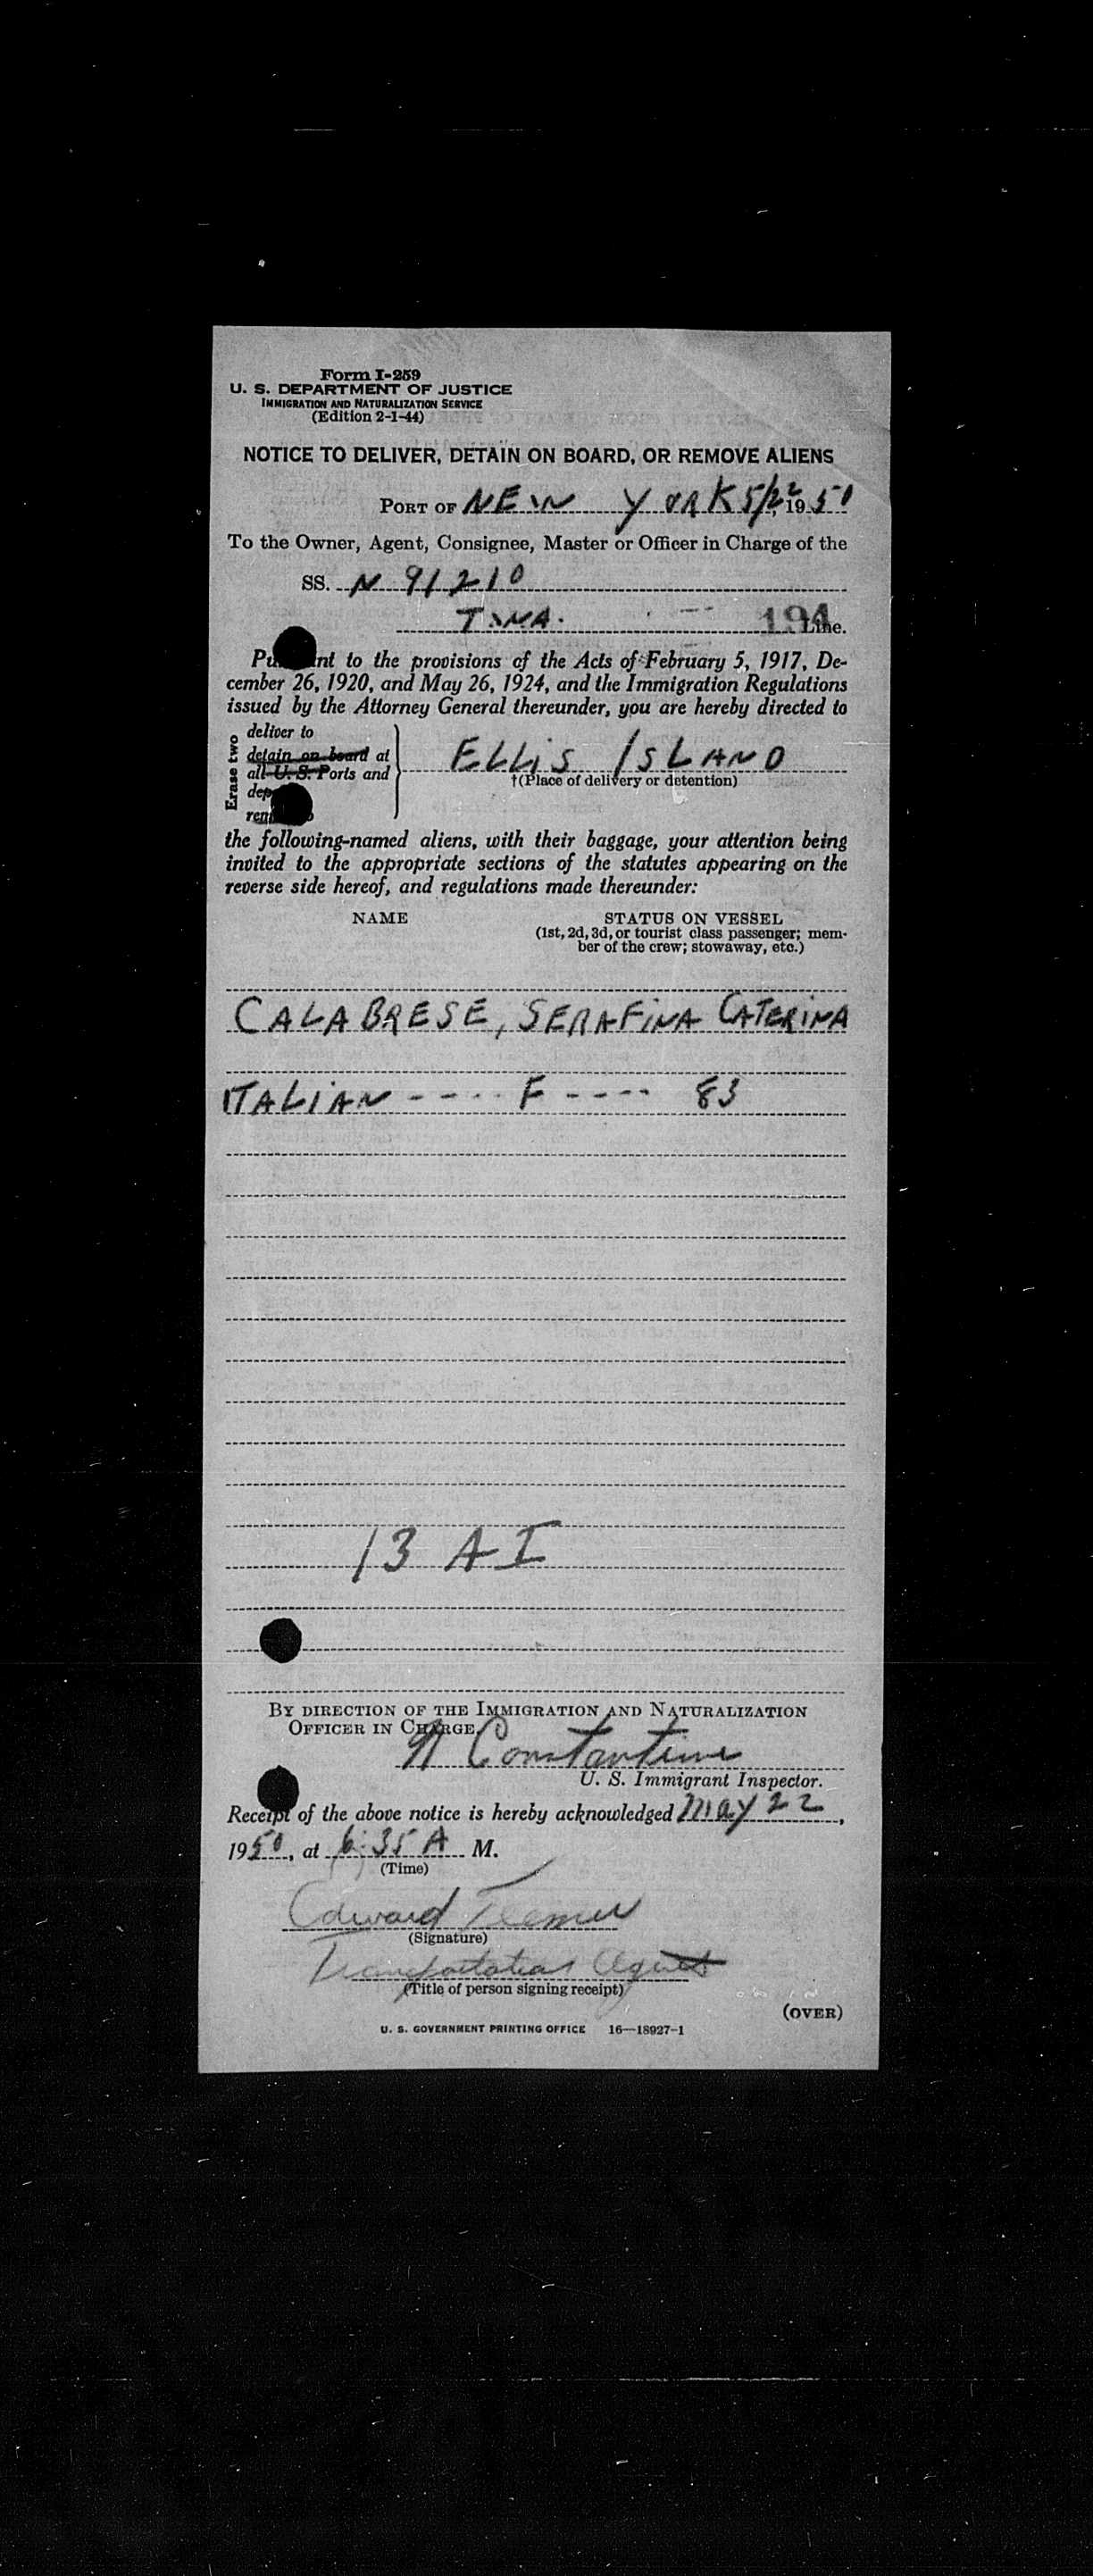 Form I-259
U. S. DEPARTMENT OF JUSTICE
IMMIGRATION AND NATURALIZATION SERVICE
(Edition 2-1-44)
NOTICE TO DELIVER, DETAIN ON BOARD, OR REMOVE ALIENS
PORT OF NEW YORK 5/22, 1950
To the Owner, Agent, Consignee, Master or Officer in Charge of the
SS. N 91210
194 Line.
to the provisions of the Acts of February 5, 1917, De-
cember 26, 1920, and May 26, 1924, and the Immigration Regulations
issued by the Attorney General thereunder, you are hereby directed to
Erase two
deliver to
detain on board at
all U. S. Ports and
ELLIS ISLAND
†(Place of delivery or detention)
the following-named aliens, with their baggage, your attention being
invited to the appropriate sections of the statutes appearing on the
reverse side hereof, and regulations made thereunder:
NAME STATUS ON VESSEL
(1st, 2d, 3d, or tourist class passenger; mem-
ber of the crew; stowaway, etc.)
CALABRESE, SERAFINA CATERINA
ITALIAN - - - - F - - - - 83
13 A I
BY DIRECTION OF THE IMMIGRATION AND NATURALIZATION
OFFICER IN CHARGE.
Constantine
U. S. Immigrant Inspector.
Receipt of the above notice is hereby acknowledged May 22,
1950, at 6:35 A M.
(Time)
Edward
(Signature)
Transportation Agent
(Title of person signing receipt)
(OVER)
U. S. GOVERNMENT PRINTING OFFICE 16—18927-1